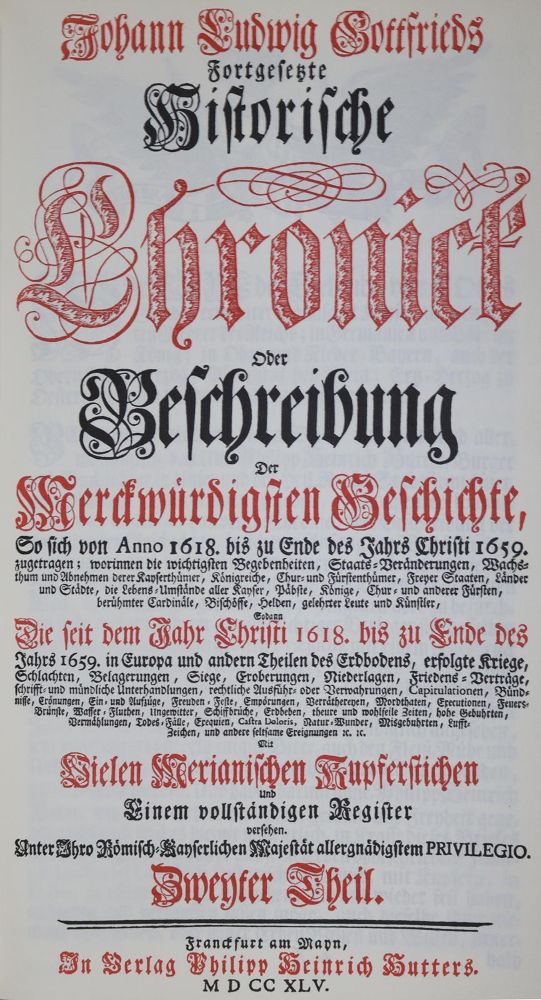 Johann Ludwig Gottfrieds
Fortgesetzte
Historische
Chronick
Oder
Beschreibung
Der
Merckwürdigsten Geschichte,
So sich von Anno 1618. bis zu Ende des Jahrs Christi 1659.
zugetragen; worinnen die wichtigsten Begebenheiten, Staats-Veränderungen, Wachs-
thum und Abnehmen derer Kayserthümer, Königreiche, Chur- und Fürstenthümer, Freyer Staaten, Länder
und Städte, die Lebens-Umstände aller Kayser, Päbste, Könige, Chur- und anderer Fürsten,
berühmter Cardinäle, Bischöffe, Helden, gelehrter Leute und Künstler,
Sodann
Die seit dem Jahr Christi 1618. bis zu Ende des
Jahrs 1659. in Europa und andern Theilen des Erdbodens, erfolgte Kriege,
Schlachten, Belagerungen, Siege, Eroberungen, Niederlagen, Friedens-Verträge,
schrifft- und mündliche Unterhandlungen, rechtliche Ausführ- oder Verwahrungen, Capitulationen, Bünd-
nisse, Crönungen, Ein- und Aufzüge, Freuden-Feste, Empörungen, Verräthereyen, Mordthaten, Executionen, Feuers-
Brünste, Wasser-Fluthen, Ungewitter, Schiffbrüche, Erdbeben, theure und wohlfeile Zeiten, hohe Geburten,
Vermählungen, Todes-Fälle, Exequien, Castra Doloris, Natur-Wunder, Misgeburten, Lufft-
Zeichen, und andere seltsame Ereignungen ꝛc. ꝛc.
Mit
Vielen Merianischen Kupferstichen
Und
Einem vollständigen Register
versehen.
Unter Ihro Römisch-Kayserlichen Majestät allergnädigstem PRIVILEGIO.
Zweyter Theil.
Franckfurt am Mayn,
In Verlag Philipp Heinrich Hutters.
M D CC XLV.